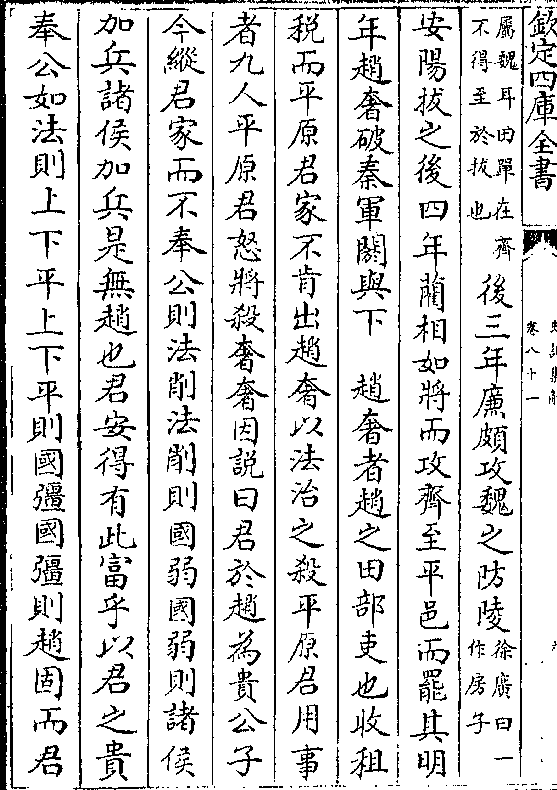 欽定四庫全書
卷八十一
屬魏耳田單在齊
不得至於拔也
後三年廉頗攻魏之防陵
徐廣曰一
作房子
安陽拔之後四年藺相如將而攻齊至平邑而罷其明
年趙奢破秦軍閼與下　趙奢者趙之田部吏也收租
稅而平原君家不肯出趙奢以法治之殺平原君用事
者九人平原君怒將殺奢奢因說曰君於趙為貴公子
今縱君家而不奉公則法削法削則國弱國弱則諸侯
加兵諸侯加兵是無趙也君安得有此富乎以君之貴
奉公如法則上下平上下平則國彊國彊則趙固而君